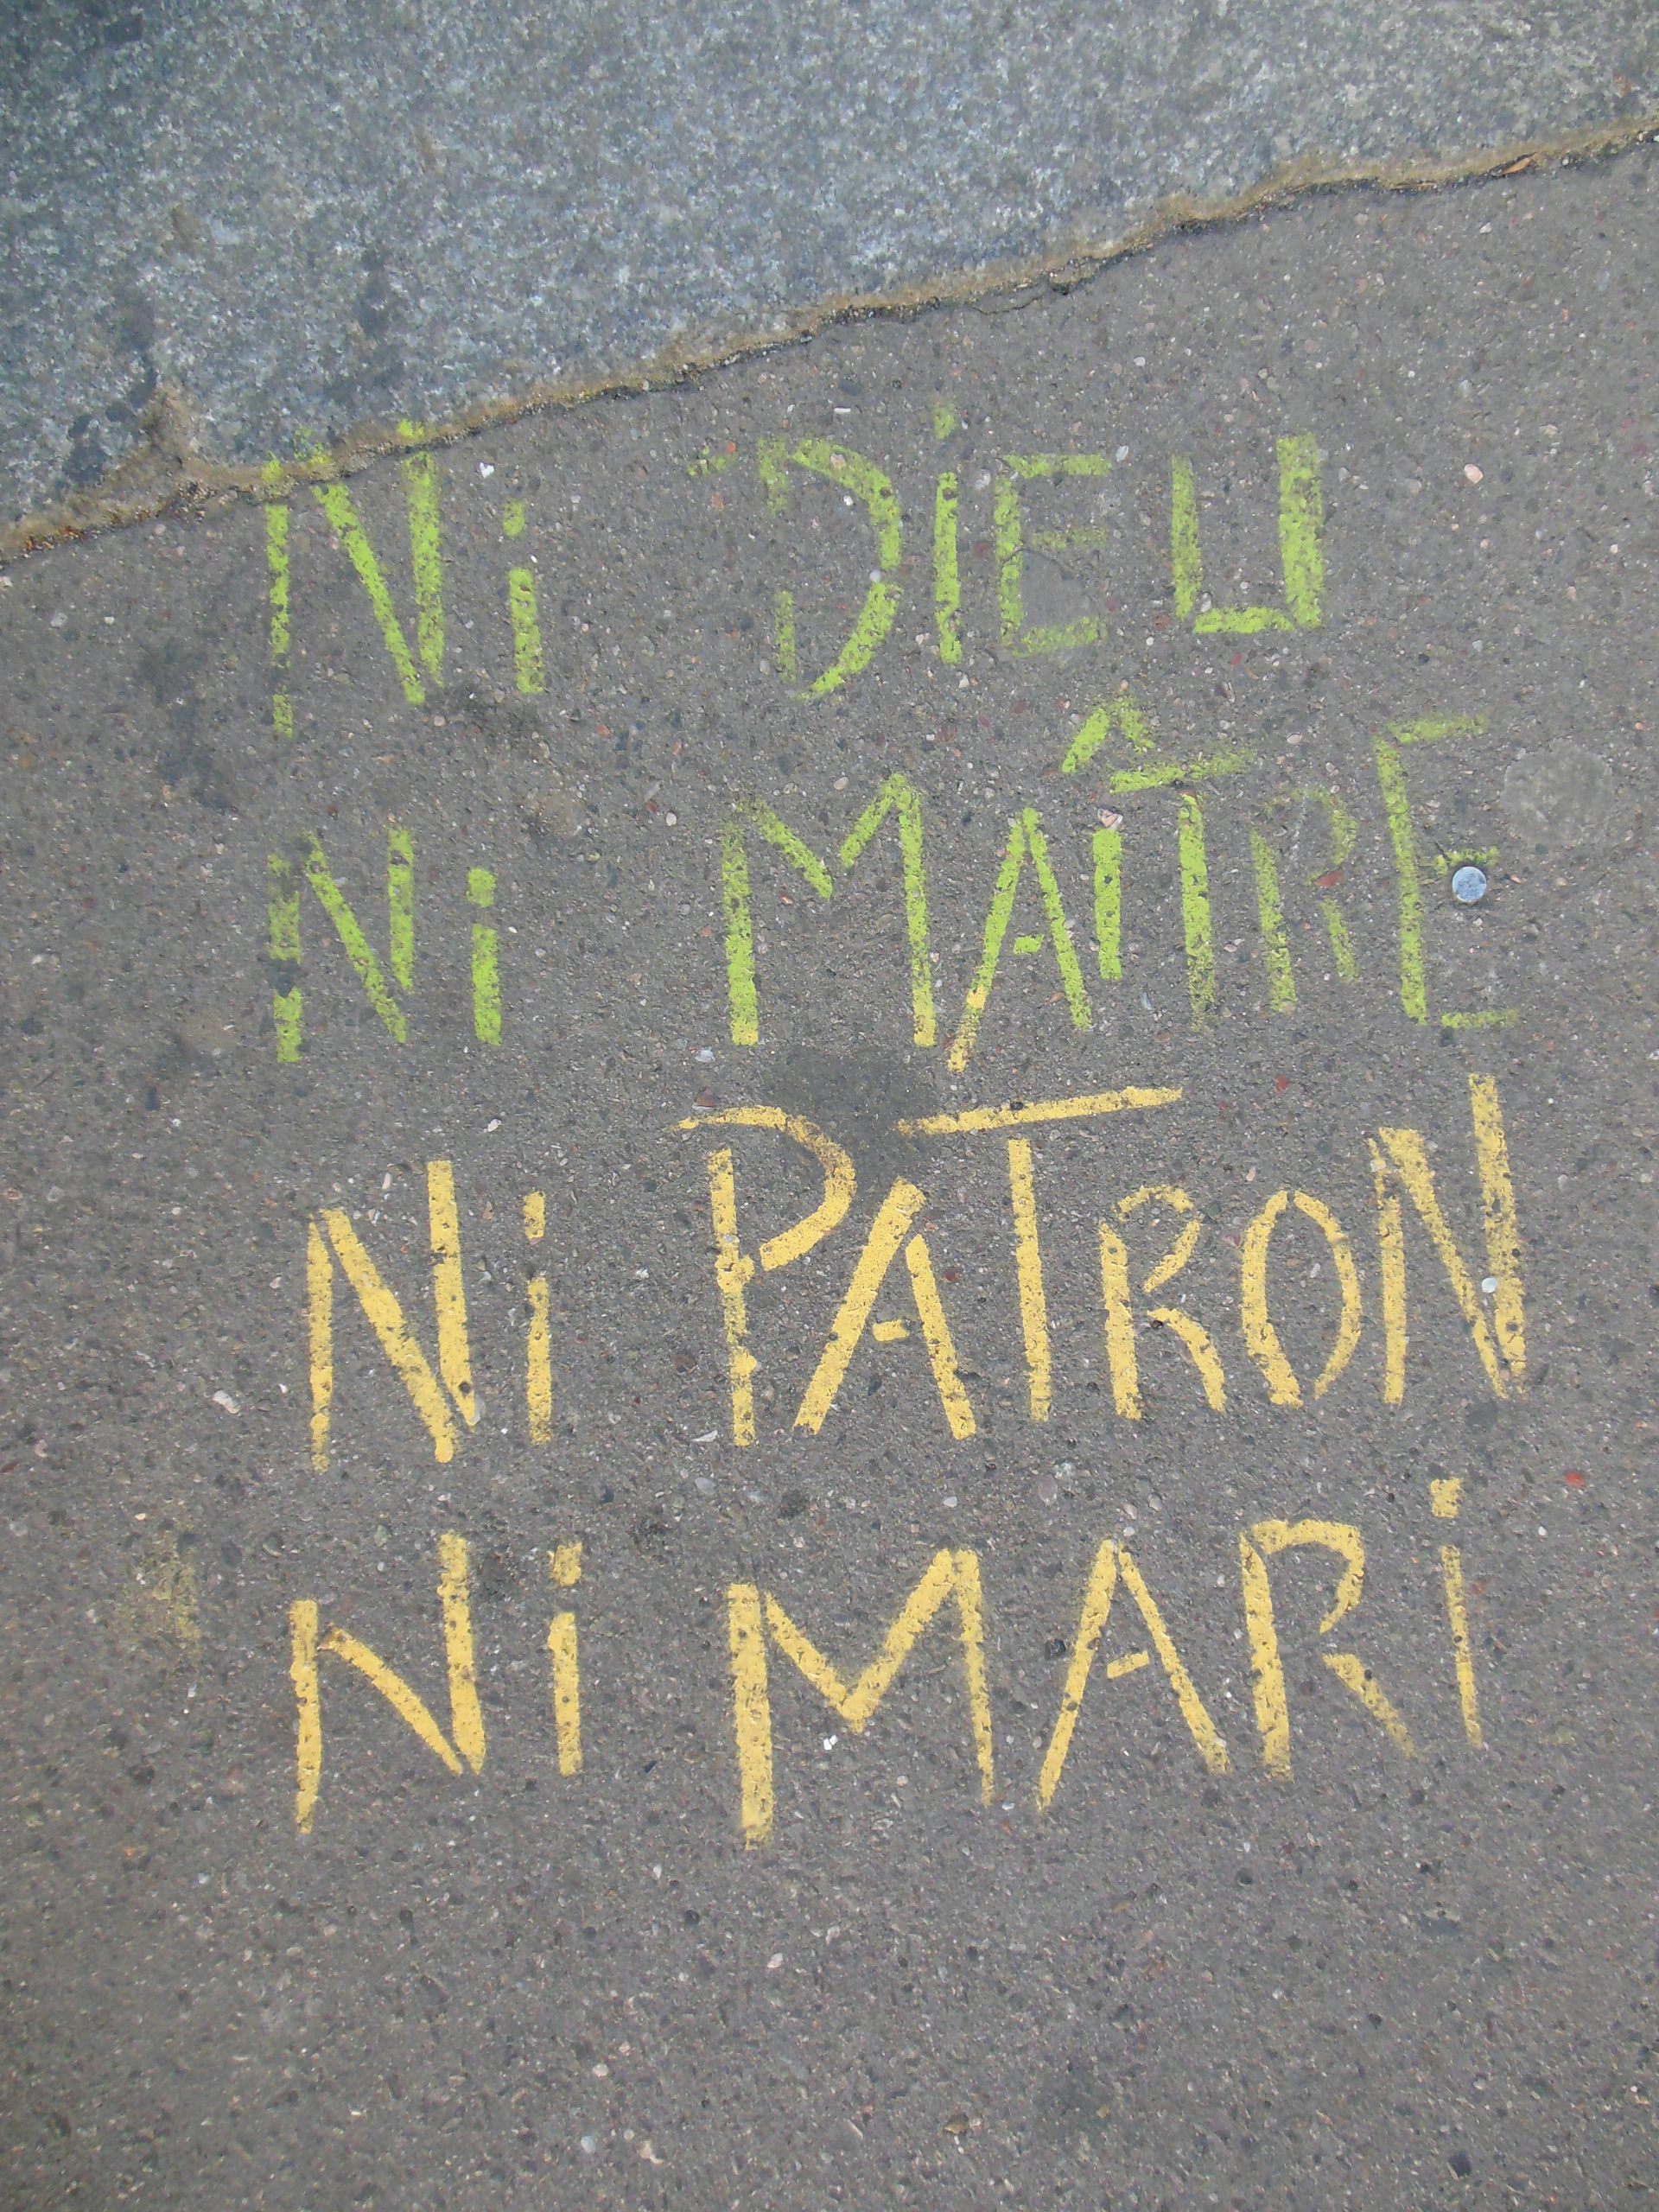 Ni DiEU
Ni MAÎTRE
Ni PATRON
Ni MARi